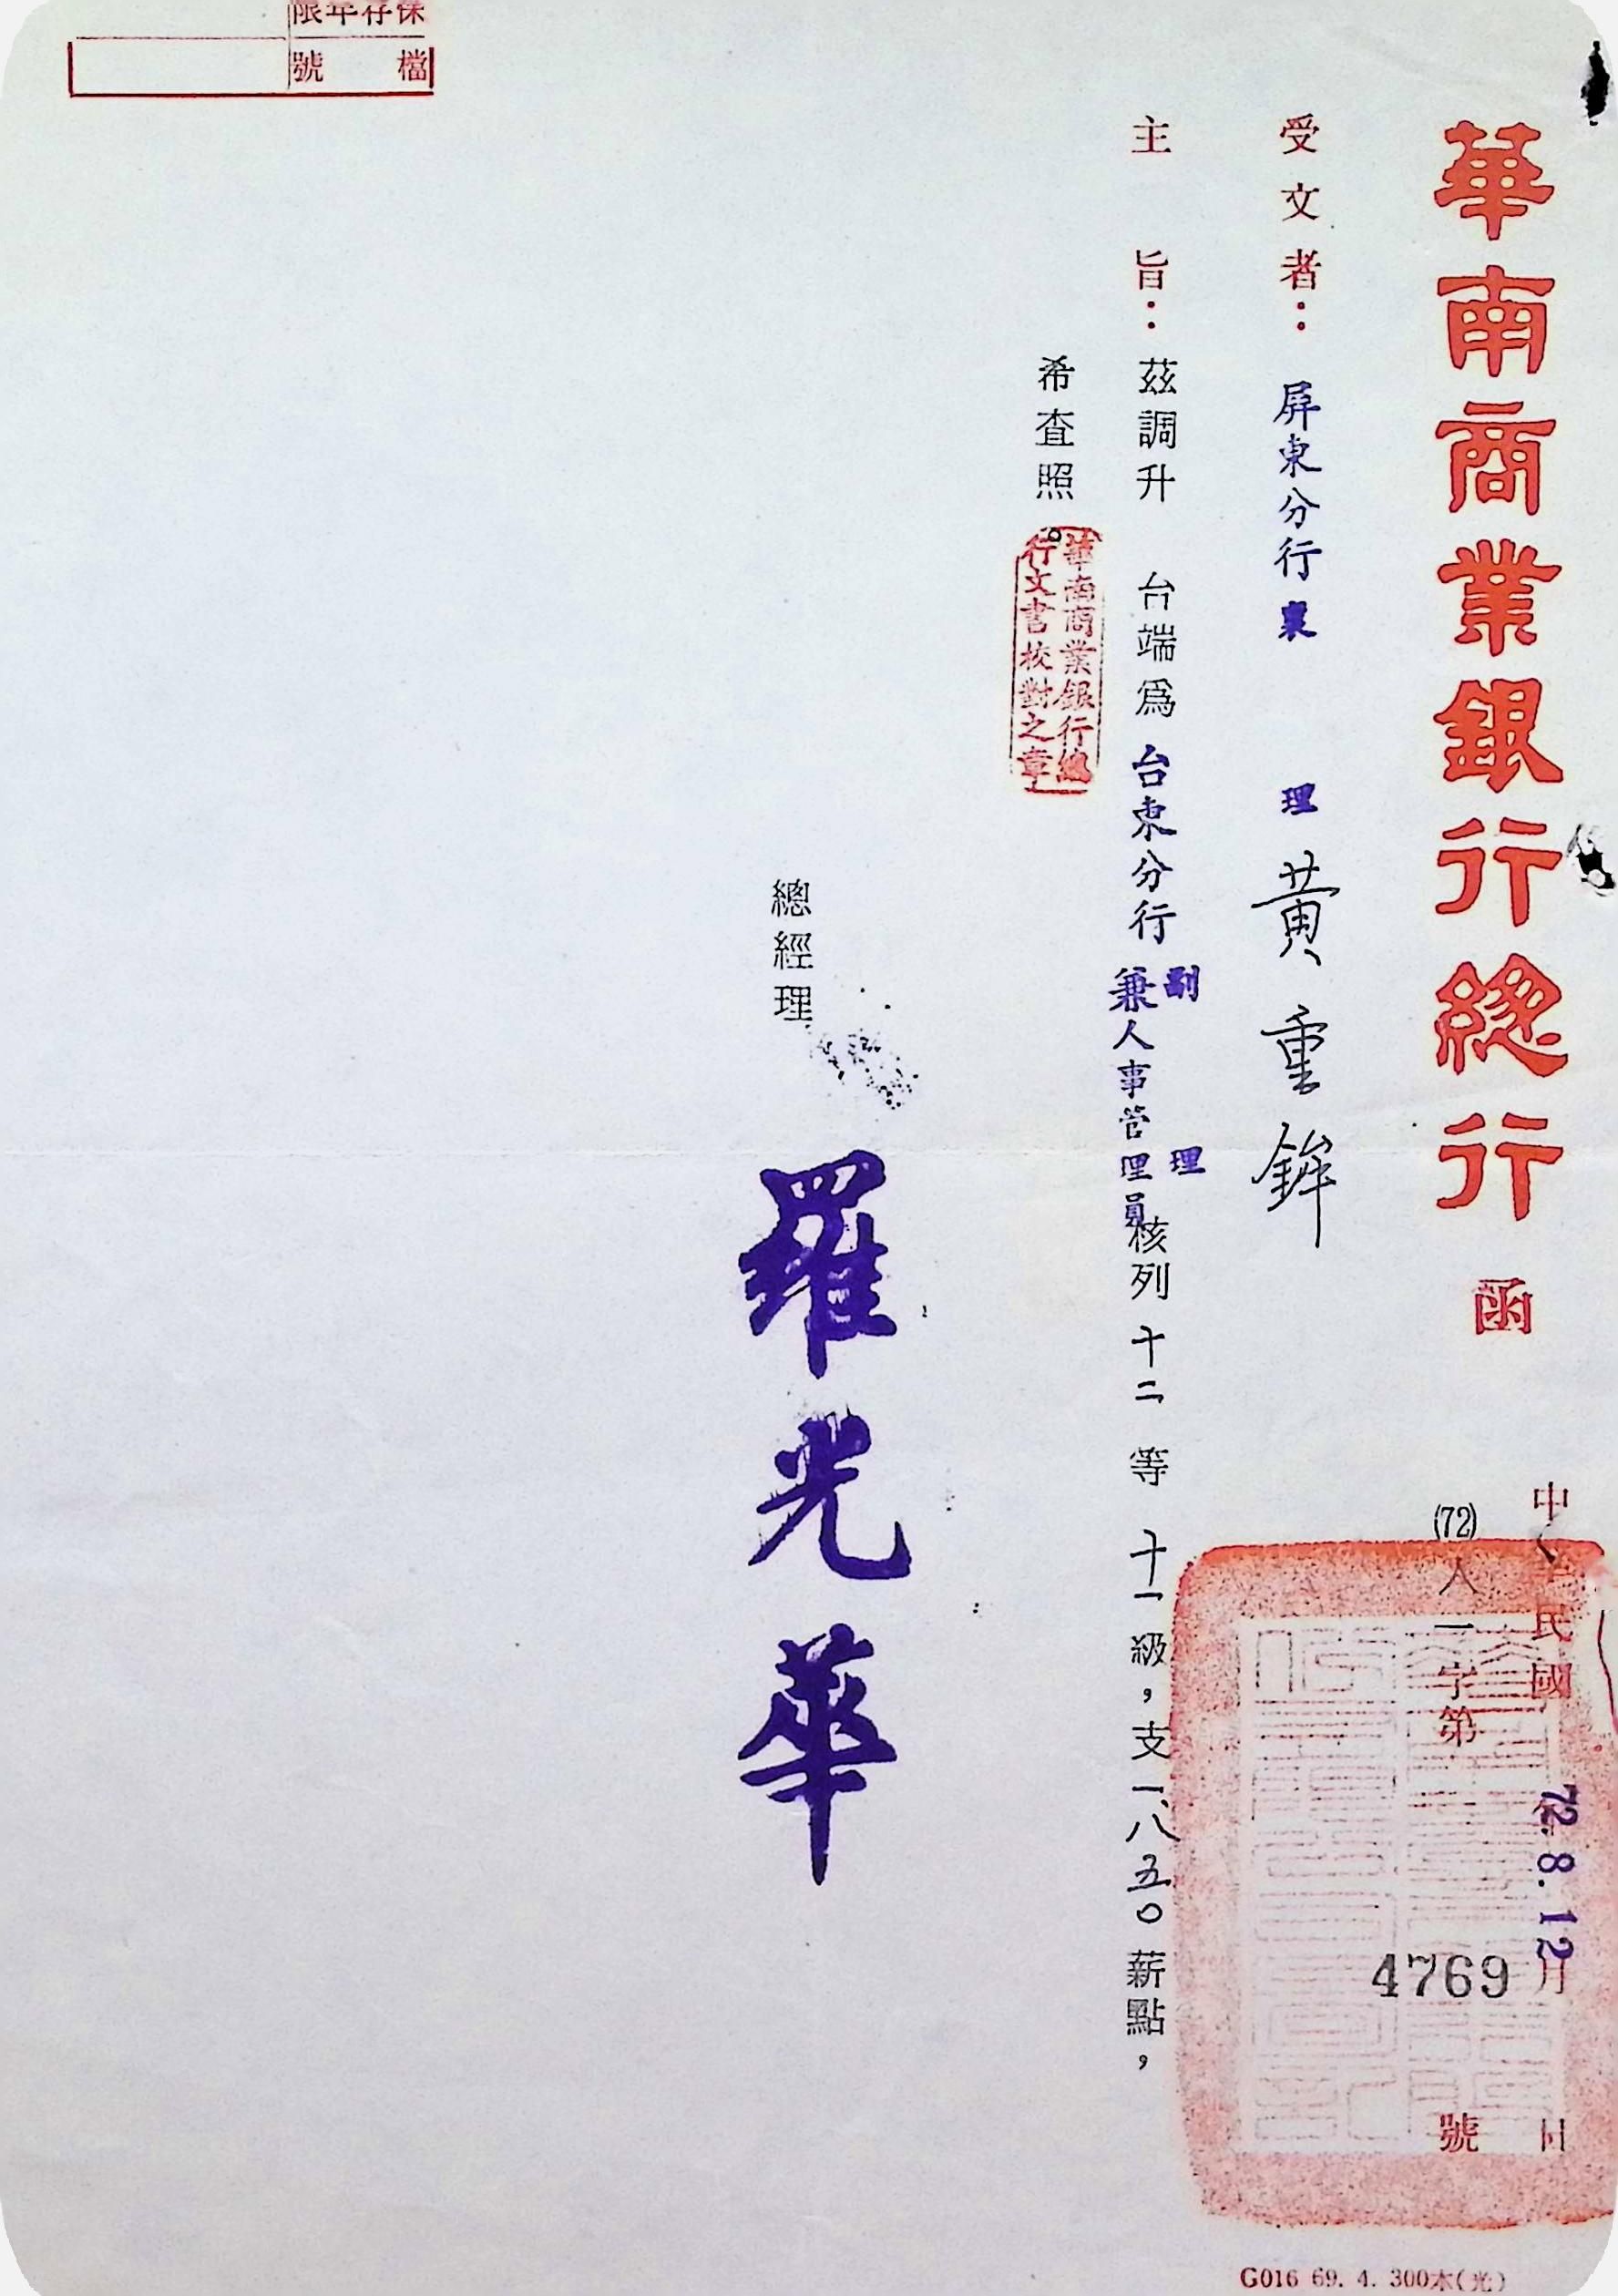 華南商業銀行總行 函
中民國 72.8.12 月 日
(72)人一字第 4769 號
受文者：屏東分行 襄理 黃重鉾
主旨：茲調升 台端為 台東分行 副理
兼人事管理員
核列 十二 等 十一 級，支 一八五〇 薪點，
希查照。
華南商業銀行總
行文書校對之章
總經理 羅光華
保存年限
檔號
G016 69. 4. 300本(光)